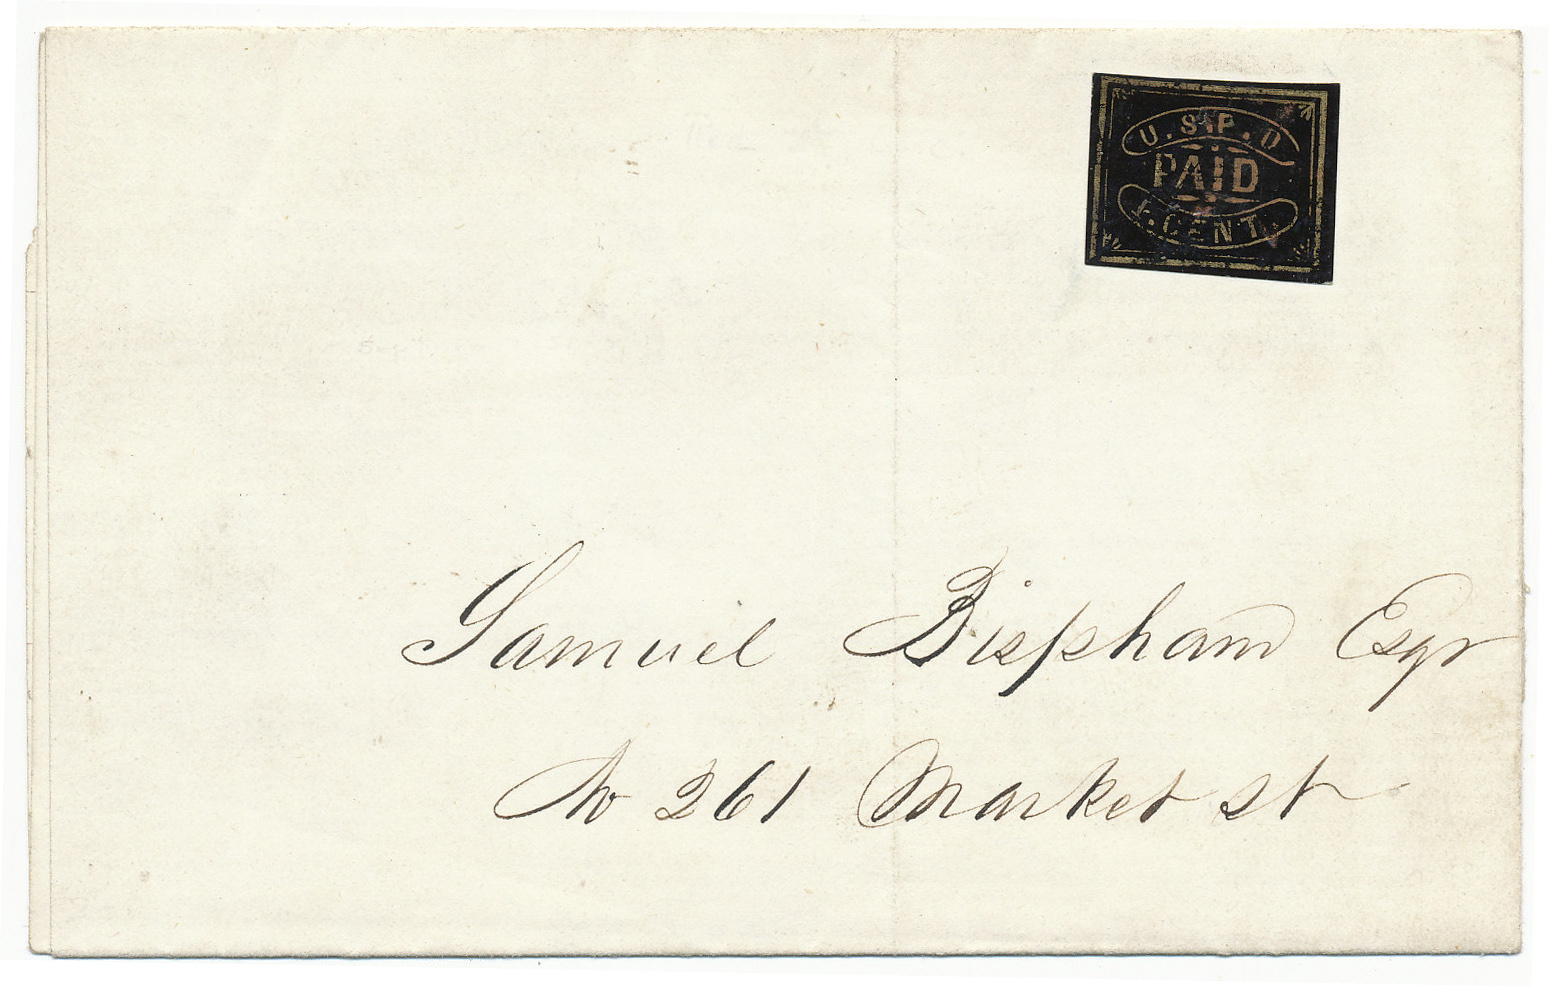 U.S.P.O
PAID
1.CENT.
Samuel Bispham Esqr
No 261 Market st